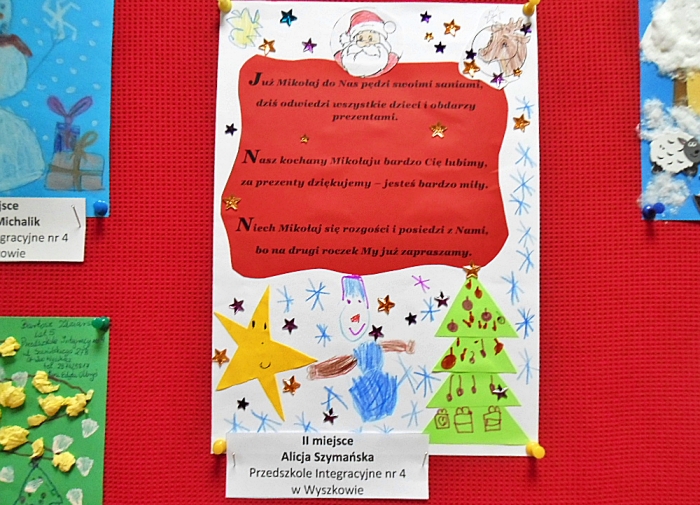 Już Mikołaj do Nas pędzi swoimi saniami,
dziś odwiedzi wszystkie dzieci i obdarzy
prezentami.
Nasz kochany Mikołaju bardzo Cię lubimy,
za prezenty dziękujemy – jesteś bardzo miły.
Niech Mikołaj się rozgości i posiedzi z Nami,
bo na drugi roczek My już zapraszamy.
II miejsce
Alicja Szymańska
Przedszkole Integracyjne nr 4
w Wyszkowie
jsce
Michalik
gracyjne nr 4
owie